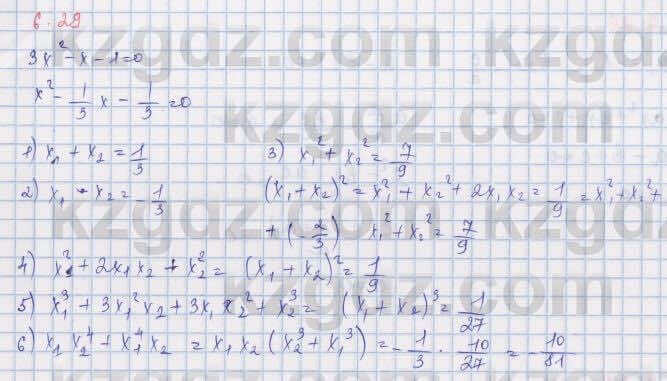 6.29
3x² - x - 1 = 0
x² - 1/3 x - 1/3 = 0
1) x₁ + x₂ = 1/3
2) x₁ · x₂ = - 1/3
3) x₁² + x₂² = 7/9
(x₁ + x₂)² = x₁² + x₂² + 2x₁x₂ = 1/9 = x₁² + x₂² +
+ (- 2/3) x₁² + x₂² = 7/9
4) x₁² + 2x₁x₂ + x₂² = (x₁ + x₂)² = 1/9
5) x₁³ + 3x₁²x₂ + 3x₁x₂² + x₂³ = (x₁ + x₂)³ = 1/27
6) x₁x₂⁴ + x₁⁴x₂ = x₁x₂(x₂³ + x₁³) = - 1/3 · 10/27 = - 10/81
kzgdz.com
kzgdz.com
kzgdz.com
kzgdz.com